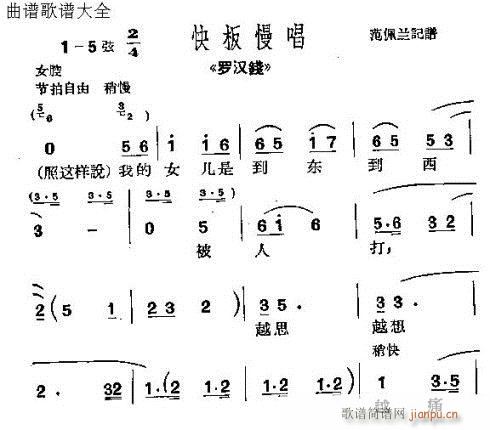 曲谱歌谱大全
1-5弦 2/4 快板慢唱 范佩兰記譜
《罗汉錢》
女腔
节拍自由 稍慢
(5 6 3 2)
0 5 6 | i i 6 | 6 5 i 7 | 6 5 5 3 |
(照这样說) 我的 女 儿是 到 东 到 西
(3·5 3·5) (3·5 3·5)
3 - | 0 5 | 6 i 6 | 5·6 3 2 |
被 人 打,
2 (5 1 | 2 2 3 2·) | 3 5· | 3 3·
越思 越想
稍快
2· 32 | 1·(2 1·2 | 1·2 1·2) | 1 3·5
越 痛
歌谱简谱网
jianpu.cn